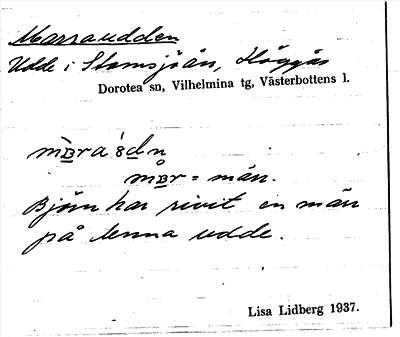 Marraudden
Udde i Stamsjöån, Höggås
Dorotea sn, Vilhelmina tg, Västerbottens l.
mɒ̀ra`8dn
mɒr = män.
Björn har rivit en män
på denna udde.
Lisa Lidberg 1937.